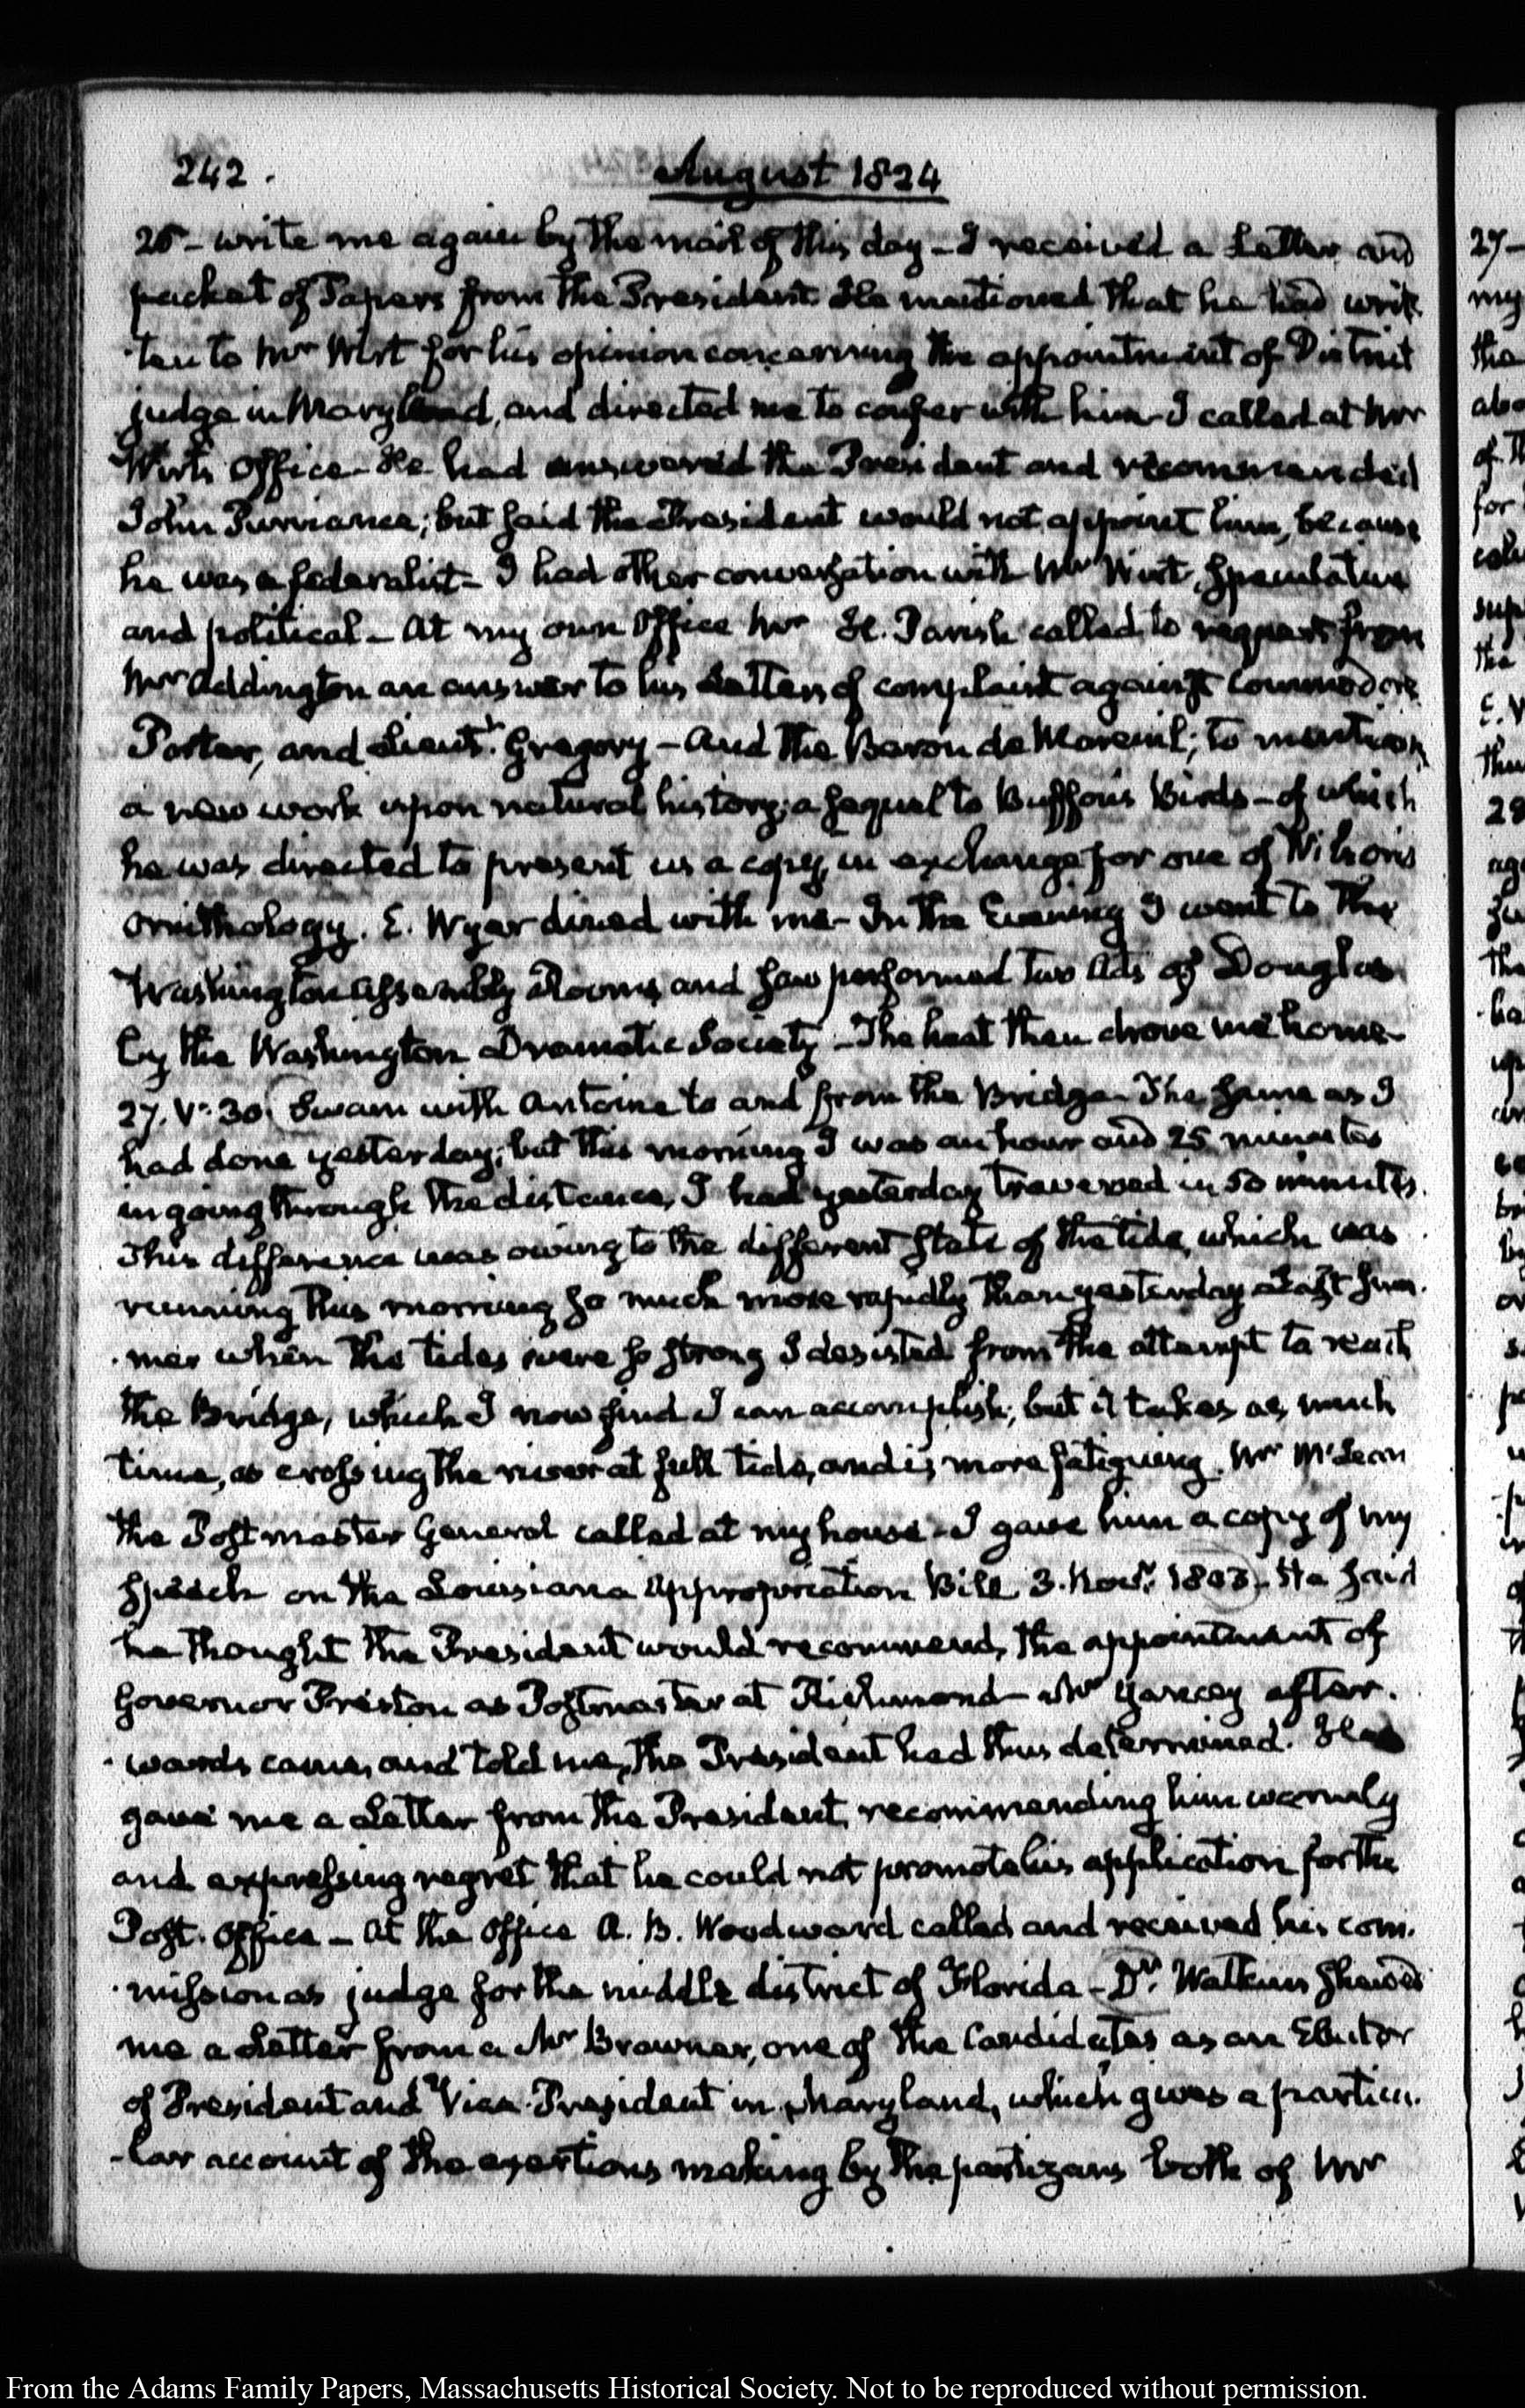 242.
August 1824
26 - write me again by the mail of this day - I received a Letter and
packet of Papers from the President. He mentioned that he had writ-
ten to Mr Wirt for his opinion concerning the appointment of District
judge in Maryland, and directed me to confer with him - I called at Mr
Wirt's Office - He had answered the President and recommended
John Purviance; but said the President would not appoint him, because
he was a federalist - I had other conversation with Mr Wirt, speculative
and political - At my own Office Mr H. Parish called to request from
Mr Addington an answer to his Letters of complaint against Commodore
Porter, and Lieutt. Gregory - And the Baron de Mareuil; to mention
a new work upon natural history; a sequel to Buffon's Birds - of which
he was directed to present us a copy, in exchange for one of Wilson's
ornithology. E. Wyer dined with me - In the Evening I went to the
Washington Assembly Rooms, and saw performed two Acts of Douglas
by the Washington Dramatic Society - The heat then drove me home -
27. V: 30. Swam with Antoine to and from the Bridge - The same as I
had done yesterday; but this morning I was an hour and 25 minutes
in going through the distance, I had yesterday traversed in 50 minutes.
This difference was owing to the different state of the tide, which was
running this morning so much more rapidly than yesterday. Last sum-
mer when the tides were so strong I desisted from the attempt to reach
the Bridge, which I now find I can accomplish; but it takes as much
time, as crossing the river at full tide, and is more fatiguing. Mr McLean
the Postmaster General called at my house - I gave him a copy of my
Speech on the Louisiana Appropriation Bill 3. Novr. 1803 - He said
he thought the President would recommend the appointment of
Governor Preston as Postmaster at Richmond - Mr Yancey after-
wards came, and told me, the President had thus determined. He
gave me a Letter from the President, recommending him warmly
and expressing regret that he could not promote his application for the
Post-Office - At the Office A. B. Woodward called and received his com-
mission as judge for the middle district of Florida - Dr. Watkins shewed
me a Letter from a Mr Brawner, one of the Candidates as an Elector
of President and Vice-President in Maryland, which gives a particu-
-lar account of the exertions making by the partizans both of Mr
27-
my
the
abo
of th
for
28
From the Adams Family Papers, Massachusetts Historical Society. Not to be reproduced without permission.